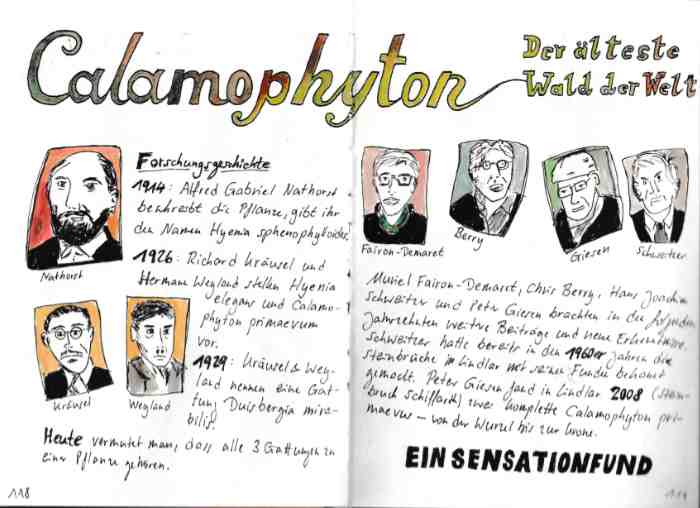 Calamophyton
Der älteste
Wald der Welt
Forschungsgeschichte
1914: Alfred Gabriel Nathorst
beschreibt die Pflanze, gibt ihr
den Namen Hyenia sphenophylloides.
1926: Richard Kräusel und
Hermann Weyland stellen Hyenia
elegans und Calamo-
phyton primaevum
vor.
1929: Kräusel & Wey-
land nennen eine Gat-
tung Duisbergia mira-
bilis.
Heute vermutet man, dass alle 3 Gattungen zu
einer Pflanze gehören.
Nathorst
Kräusel
Weyland
118
Fairon-Demaret
Berry
Giesen
Schweitzer
Muriel Fairon-Demaret, Chris Berry, Hans Joachim
Schweitzer und Peter Giesen brachten in den folgenden
Jahrzehnten weitere Beiträge und neue Erkenntnisse.
Schweitzer hatte bereits in den 1960er Jahren die
Steinbrüche in Lindlar mit seinen Funden bekannt
gemacht. Peter Giesen fand in Lindlar 2008 (Stein-
bruch Schiffarth) zwei komplette Calamophyton pri-
maevus – von der Wurzel bis zur Krone.
EIN SENSATIONFUND
119